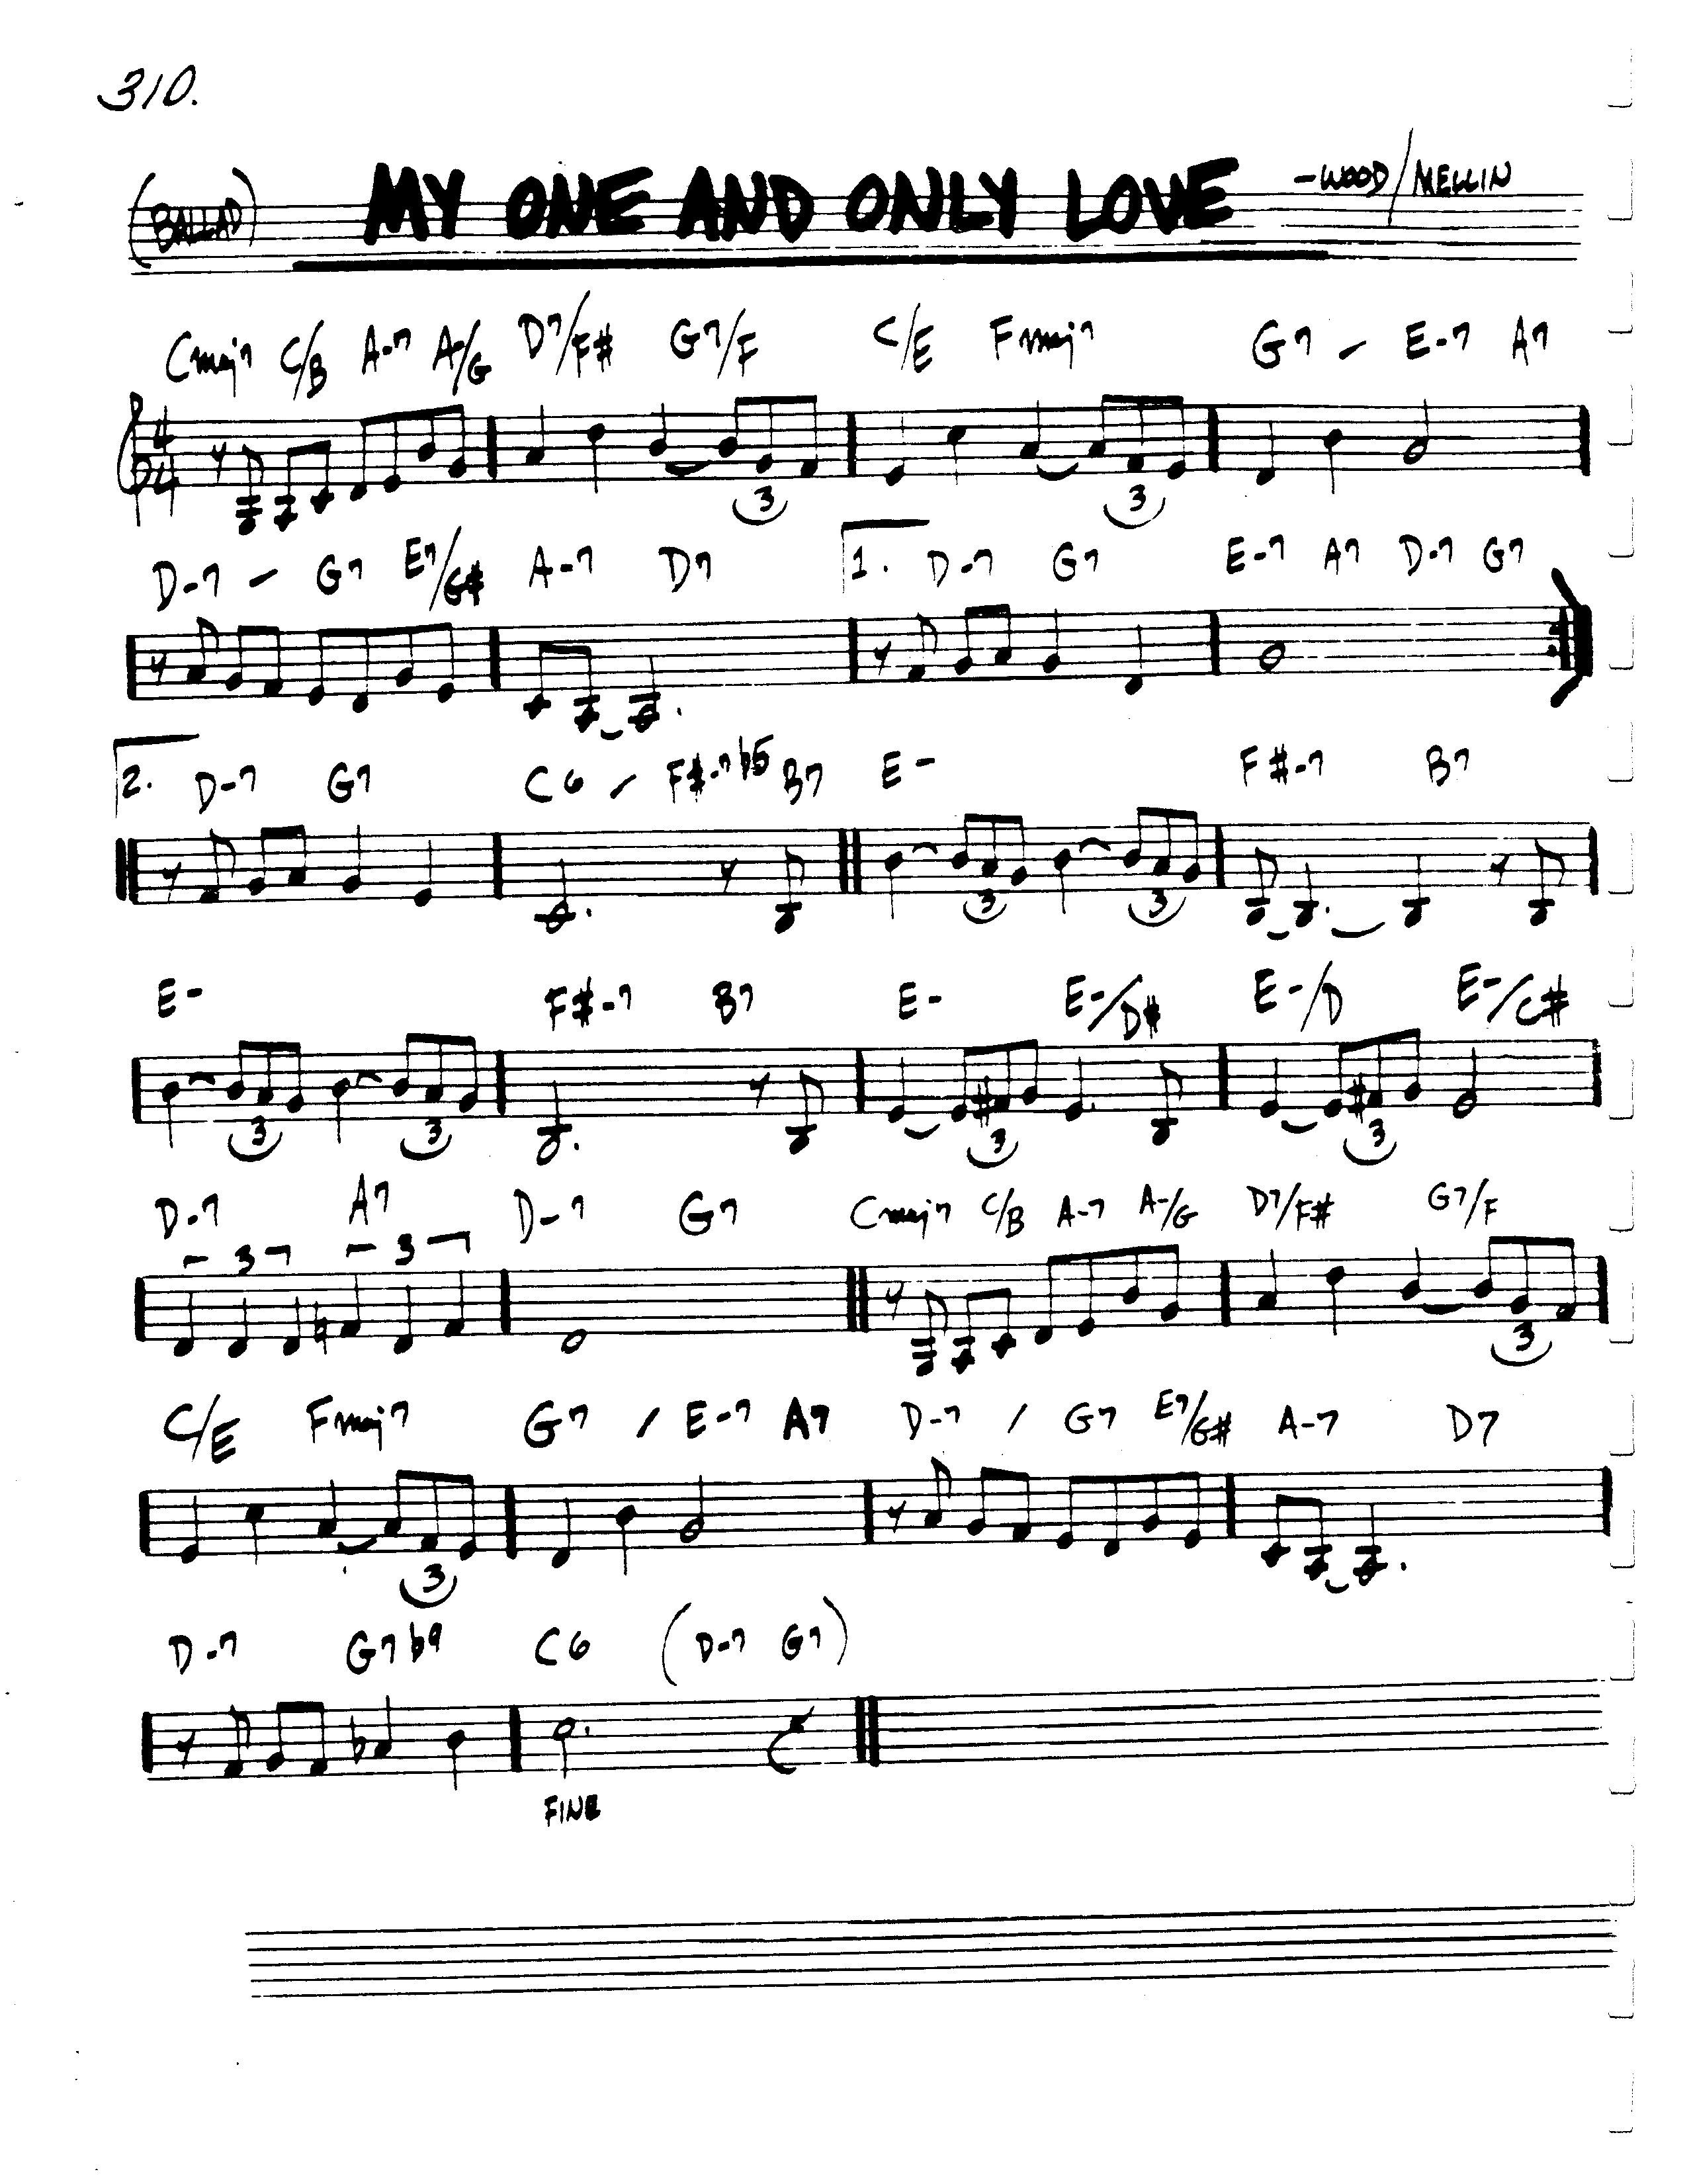 310.
(BALLAD) MY ONE AND ONLY LOVE -WOOD/MELLIN
Cmaj7 C/B A-7 A-/G D7/F# G7/F C/E Fmaj7 G7 - E-7 A7
4
4
3 3
D-7 - G7 E7/G# A-7 D7 1. D-7 G7 E-7 A7 D-7 G7
2. D-7 G7 C6 - F#-7b5 B7 E- F#-7 B7
3 3
E- F#-7 B7 E- E-/D# E-/D E-/C#
3 3 3 3
D-7 A7 D-7 G7 Cmaj7 C/B A-7 A-/G D7/F# G7/F
3 3
3
C/E Fmaj7 G7 / E-7 A7 D-7 / G7 E7/G# A-7 D7
3
D-7 G7b9 C6 (D-7 G7)
FINE